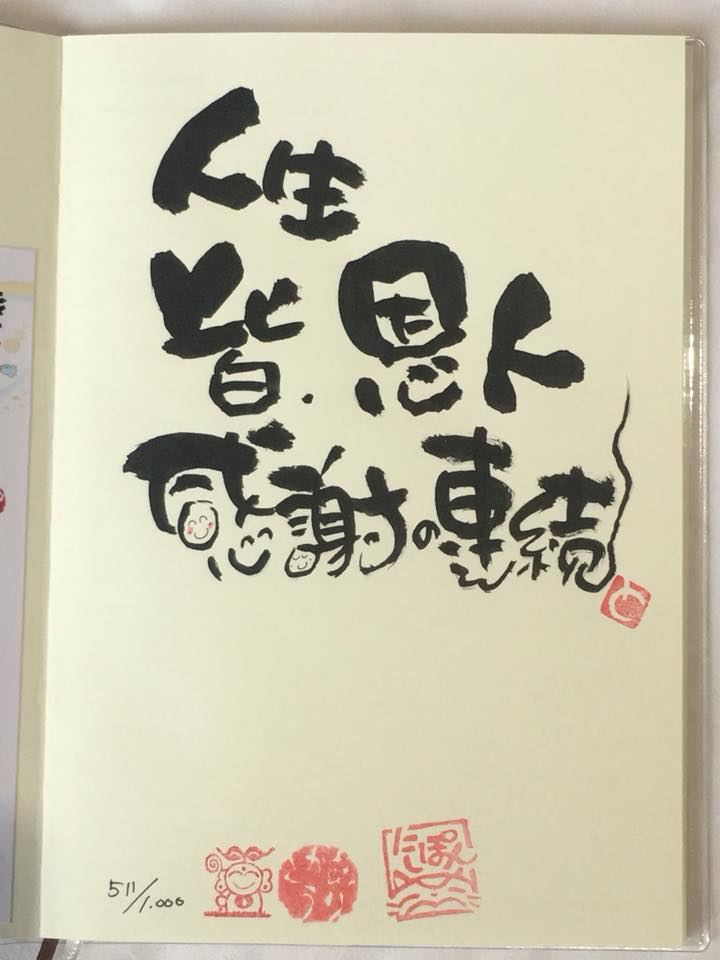 人生
皆恩人
感謝の連続
と
511/1.000
にっぽん